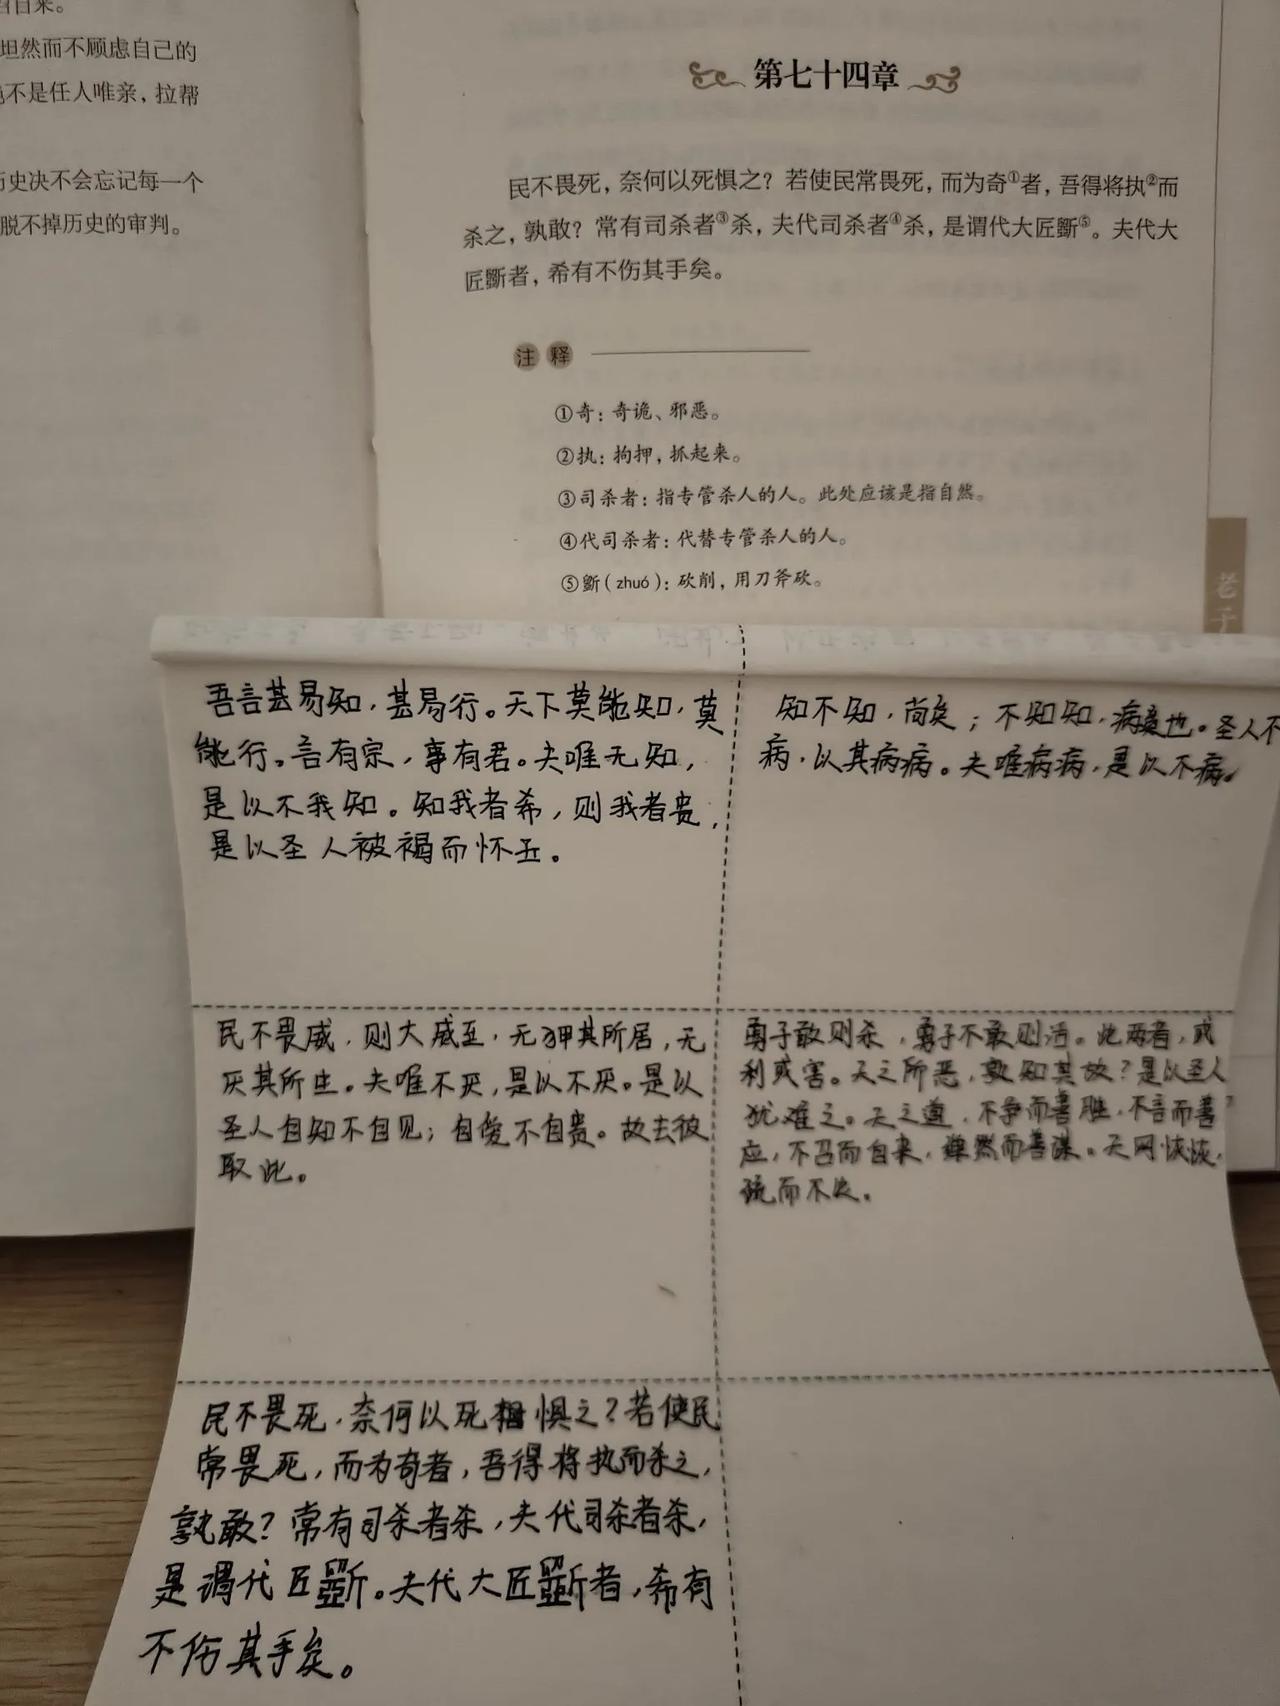 自来。
坦然而不顾虑自己的
不是任人唯亲，拉帮
历史决不会忘记每一个
脱不掉历史的审判。
第七十四章
民不畏死，奈何以死惧之？若使民常畏死，而为奇①者，吾得将执②而
杀之，孰敢？常有司杀者③杀，夫代司杀者④杀，是谓代大匠斲⑤。夫代大
匠斲者，希有不伤其手矣。
注释
①奇：奇诡、邪恶。
②执：拘押，抓起来。
③司杀者：指专管杀人的人。此处应该是指自然。
④代司杀者：代替专管杀人的人。
⑤斲（zhuó）：砍削，用刀斧砍。
老子
吾言甚易知，甚易行。天下莫能知，莫
能行。言有宗，事有君。夫唯无知，
是以不我知。知我者希，则我者贵，
是以圣人被褐而怀玉。
知不知，尚矣；不知知，病也。圣人不
病，以其病病。夫唯病病，是以不病。
民不畏威，则大威至，无狎其所居，无
厌其所生。夫唯不厌，是以不厌。是以
圣人自知不自见；自爱不自贵。故去彼
取此。
勇于敢则杀，勇于不敢则活。此两者，或
利或害。天之所恶，孰知其故？是以圣人
犹难之。天之道，不争而善胜，不言而善
应，不召而自来，繟然而善谋。天网恢恢，
疏而不失。
民不畏死，奈何以死惧之？若使民
常畏死，而为奇者，吾得将执而杀之，
孰敢？常有司杀者杀，夫代司杀者杀，
是谓代匠斲。夫代大匠斲者，希有
不伤其手矣。